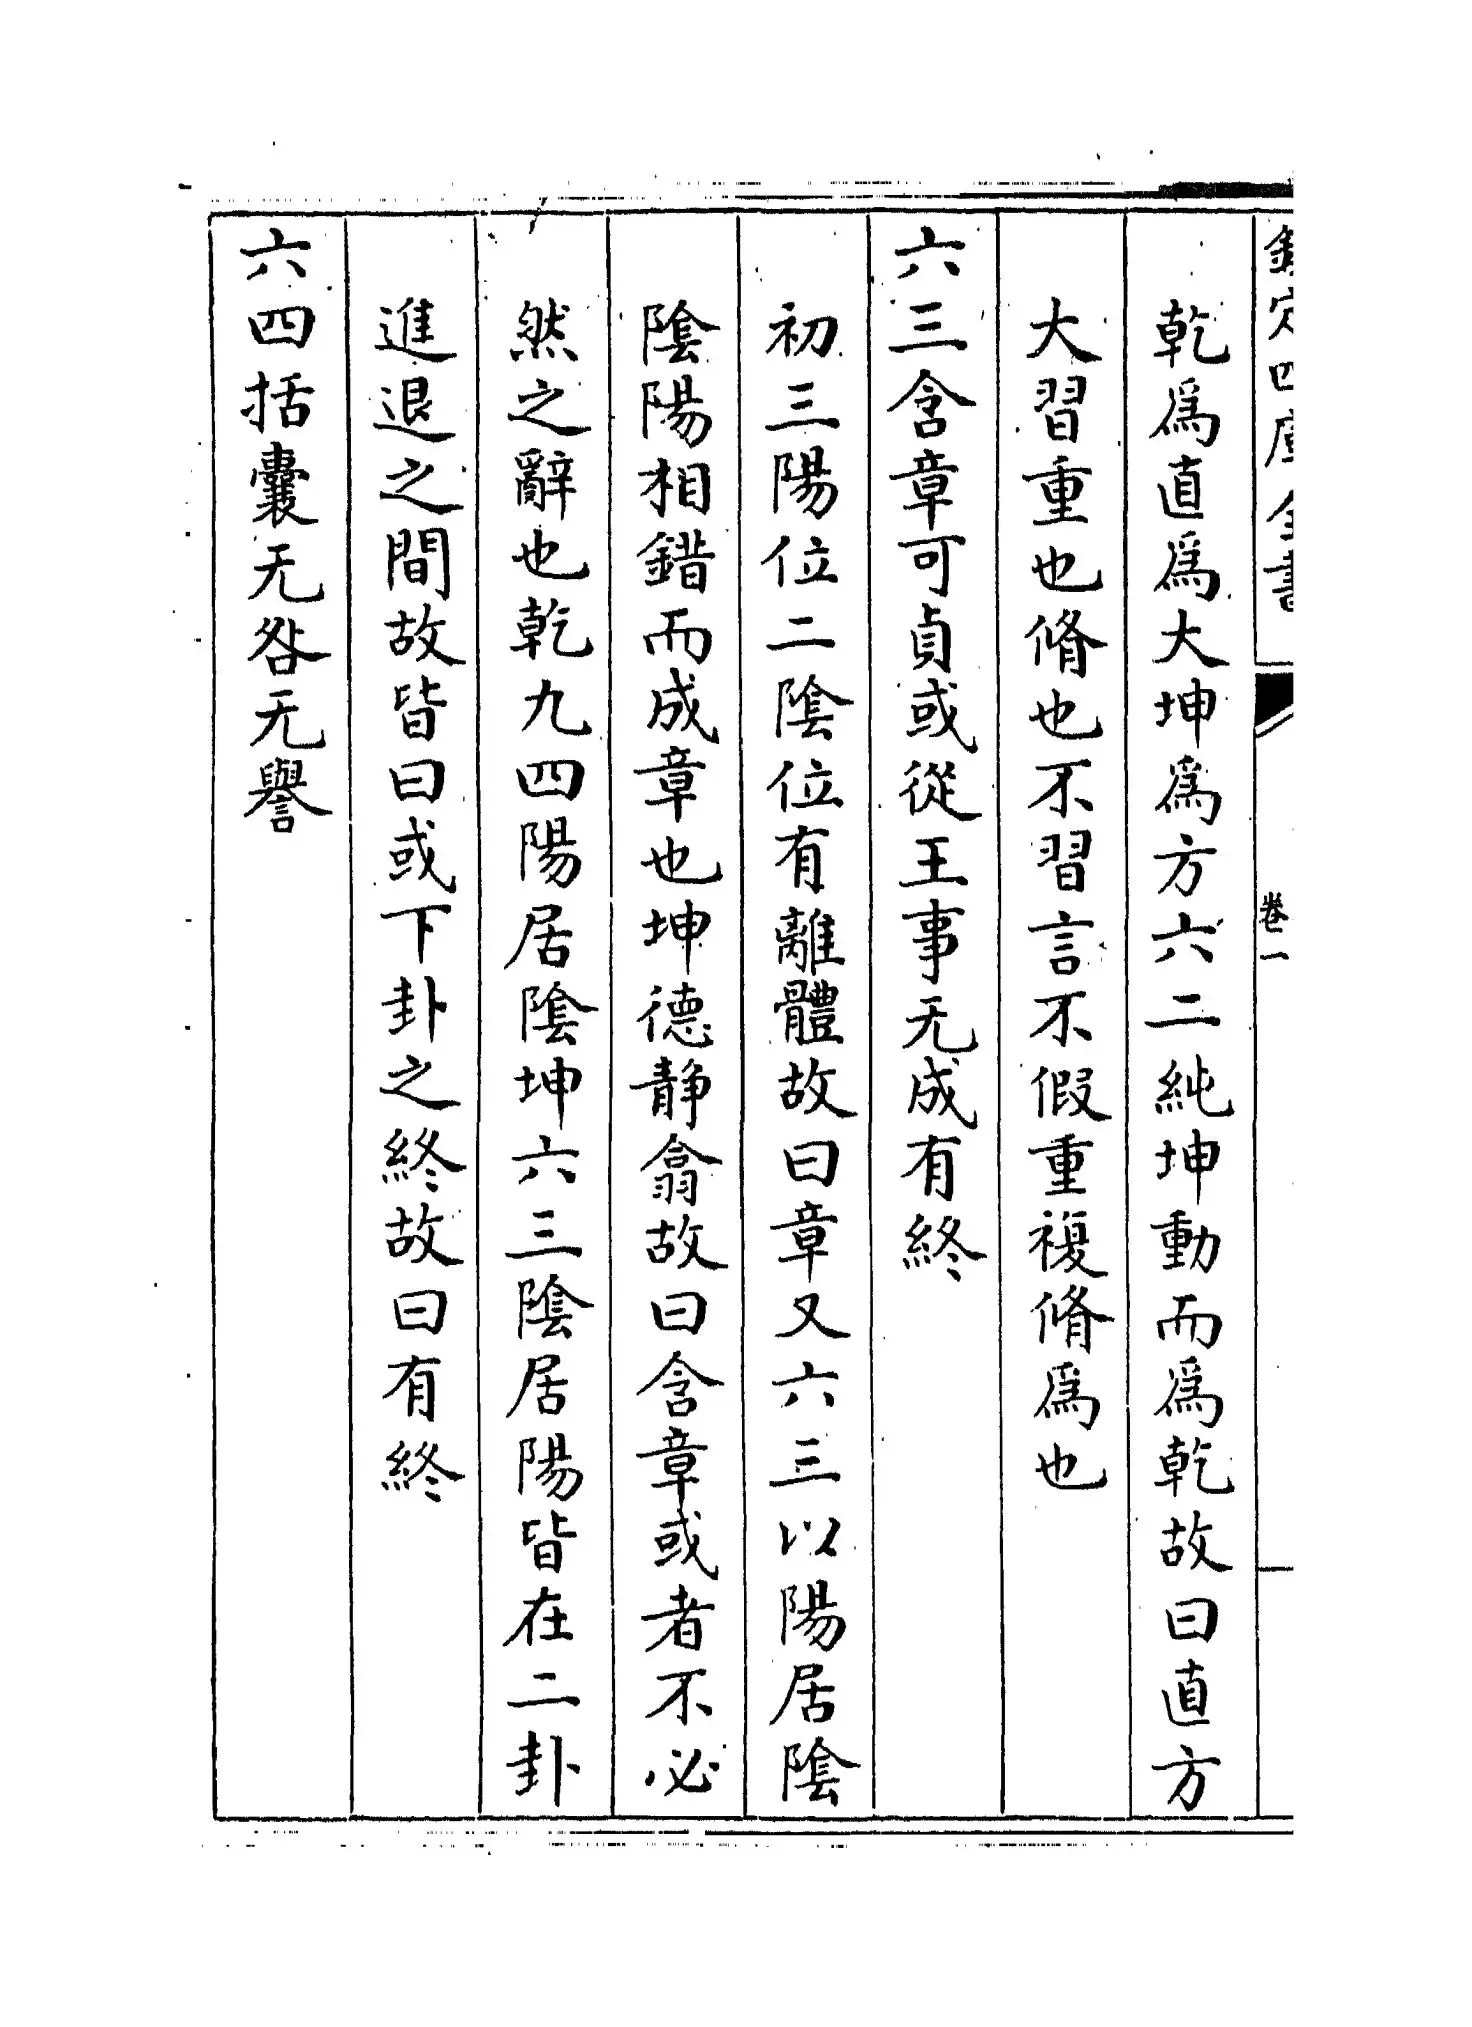 欽定四庫全書
卷一
乾爲直爲大坤爲方六二純坤動而爲乾故曰直方
大習重也脩也不習言不假重複脩爲也
六三含章可貞或從王事无成有終
初三陽位二陰位有離體故曰章又六三以陽居陰
陰陽相錯而成章也坤德静翕故曰含章或者不必
然之辭也乾九四陽居陰坤六三陰居陽皆在二卦
進退之間故皆曰或下卦之終故曰有終
六四括囊无咎无譽